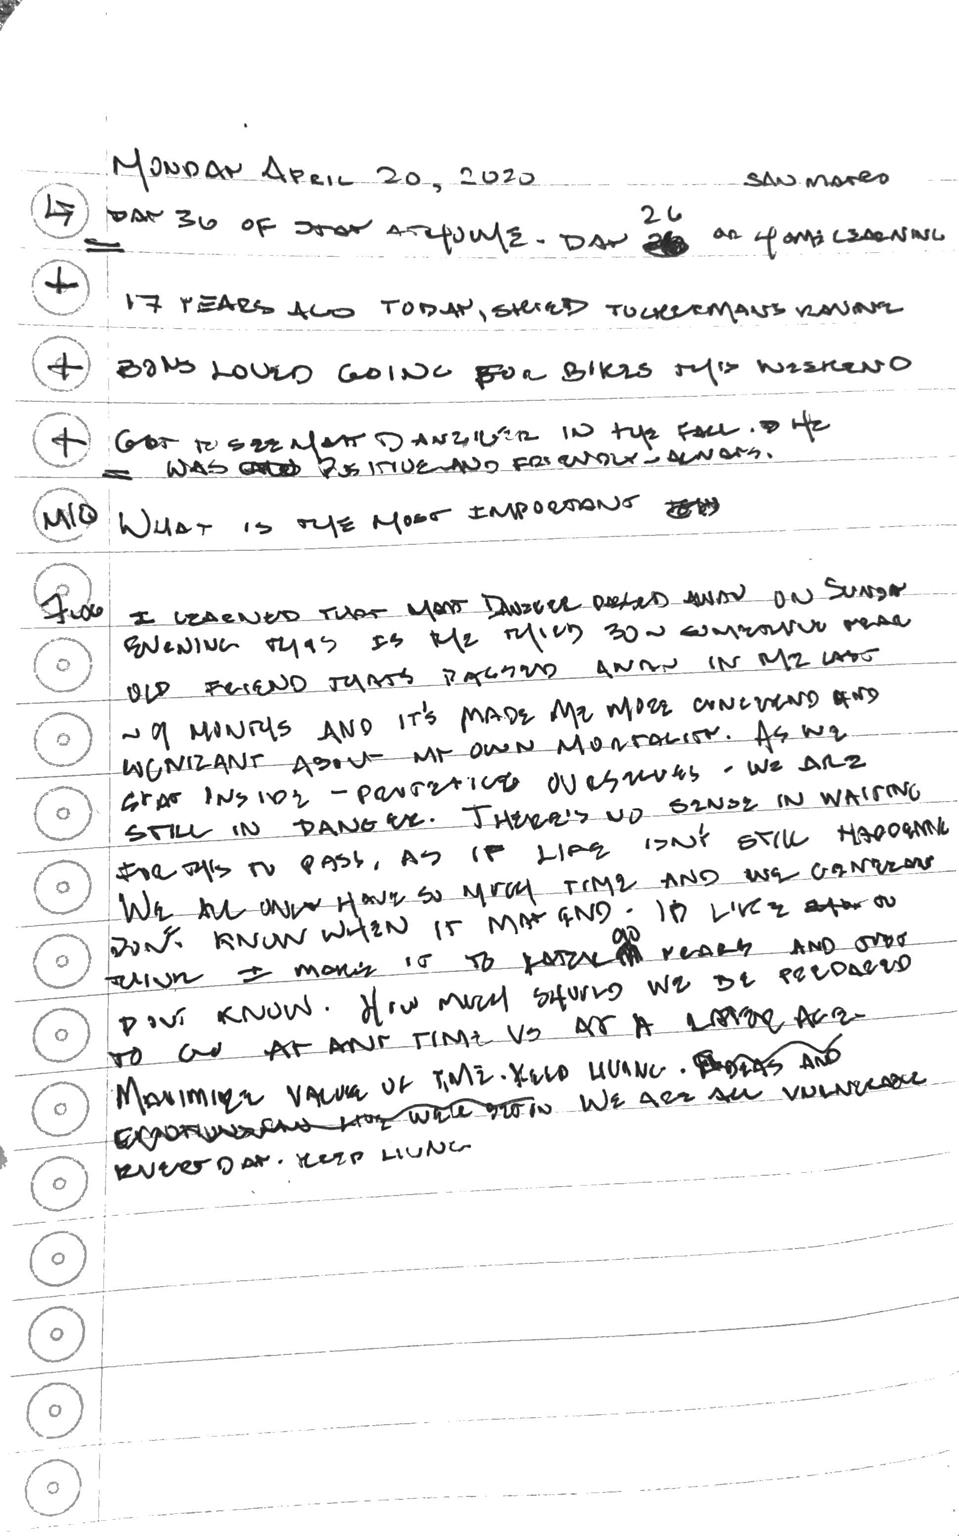 MONDAY APRIL 20, 2020 SAN MATEO
DAY 36 OF STAY AT HOME. DAY 26 OF HOME LEARNING
+ 17 YEARS AGO TODAY, SKIED TUCKERMANS RAVINE
+ BOYS LOVED GOING FOR BIKES THIS WEEKEND
+ GOT TO SEE MATT DANZIGER IN THE FALL. HE
WAS POSITIVE AND FRIENDLY - ALWAYS.
MIQ WHAT IS THE MOST IMPORTANT
I LEARNED THAT MATT DANZIGER PASSED AWAY ON SUNDAY
EVENING THIS IS THE THIRD 30 SOMETHING YEAR
OLD FRIEND THATS PASSED AWAY IN THE LAST
~ 9 MONTHS AND IT'S MADE ME MORE CONCERND AND
COGNIZANT ABOUT MY OWN MORTALITY. AS WE
STAY INSIDE - PROTECTING OURSELVES - WE ARE
STILL IN DANGER. THERE'S NO SENSE IN WAITING
FOR THIS TO PASS, AS IF LIFE ISN'T STILL HAPPENING
WE ALL ONLY HAVE SO MUCH TIME AND WE GENERALLY
DON'T KNOW WHEN IT MAY END. I'D LIKE TO
THINK I MAKE IT TO 90 YEARS AND JUST
DONT KNOW. HOW MUCH SHOULD WE BE PREPARED
TO GO AT ANY TIME VS AT A LATER AGE
MAXIMIZE VALUE OF TIME. KEEP LIVING. IDEAS AND
WE ARE ALL VULNERABLE
EVERY DAY. KEEP LIVING